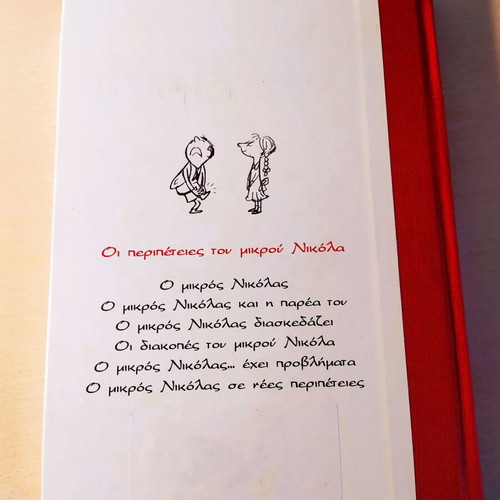 Οι περιπέτειες του μικρού Νικόλα
Ο μικρός Νικόλας
Ο μικρός Νικόλας και η παρέα του
Ο μικρός Νικόλας διασκεδάζει
Οι διακοπές του μικρού Νικόλα
Ο μικρός Νικόλας... έχει προβλήματα
Ο μικρός Νικόλας σε νέες περιπέτειες